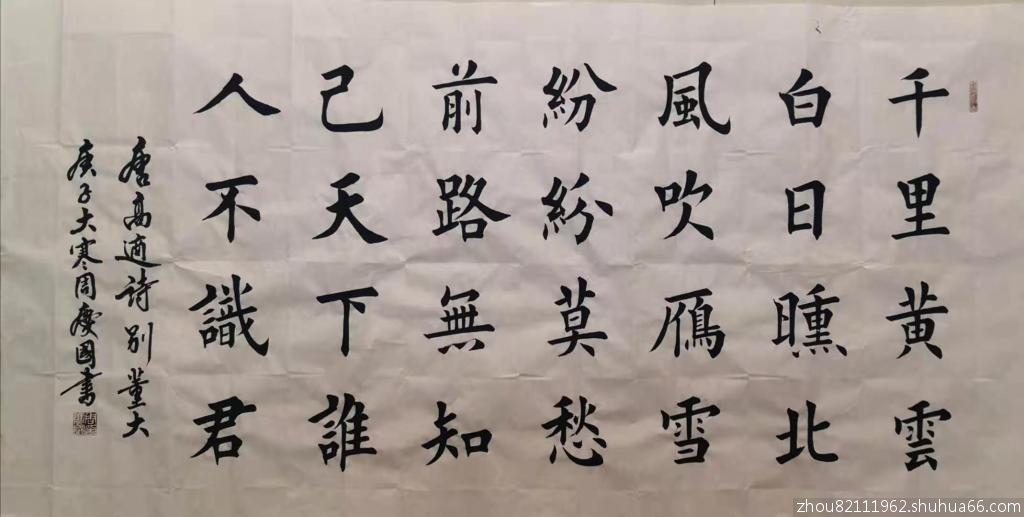 千里黄雲
白日曛北
風吹鴈雪
紛紛莫愁
前路無知
己天下誰
人不識君
唐高適詩别董大
庚子大寒周慶國書
zhou82111962.shuhua66.com